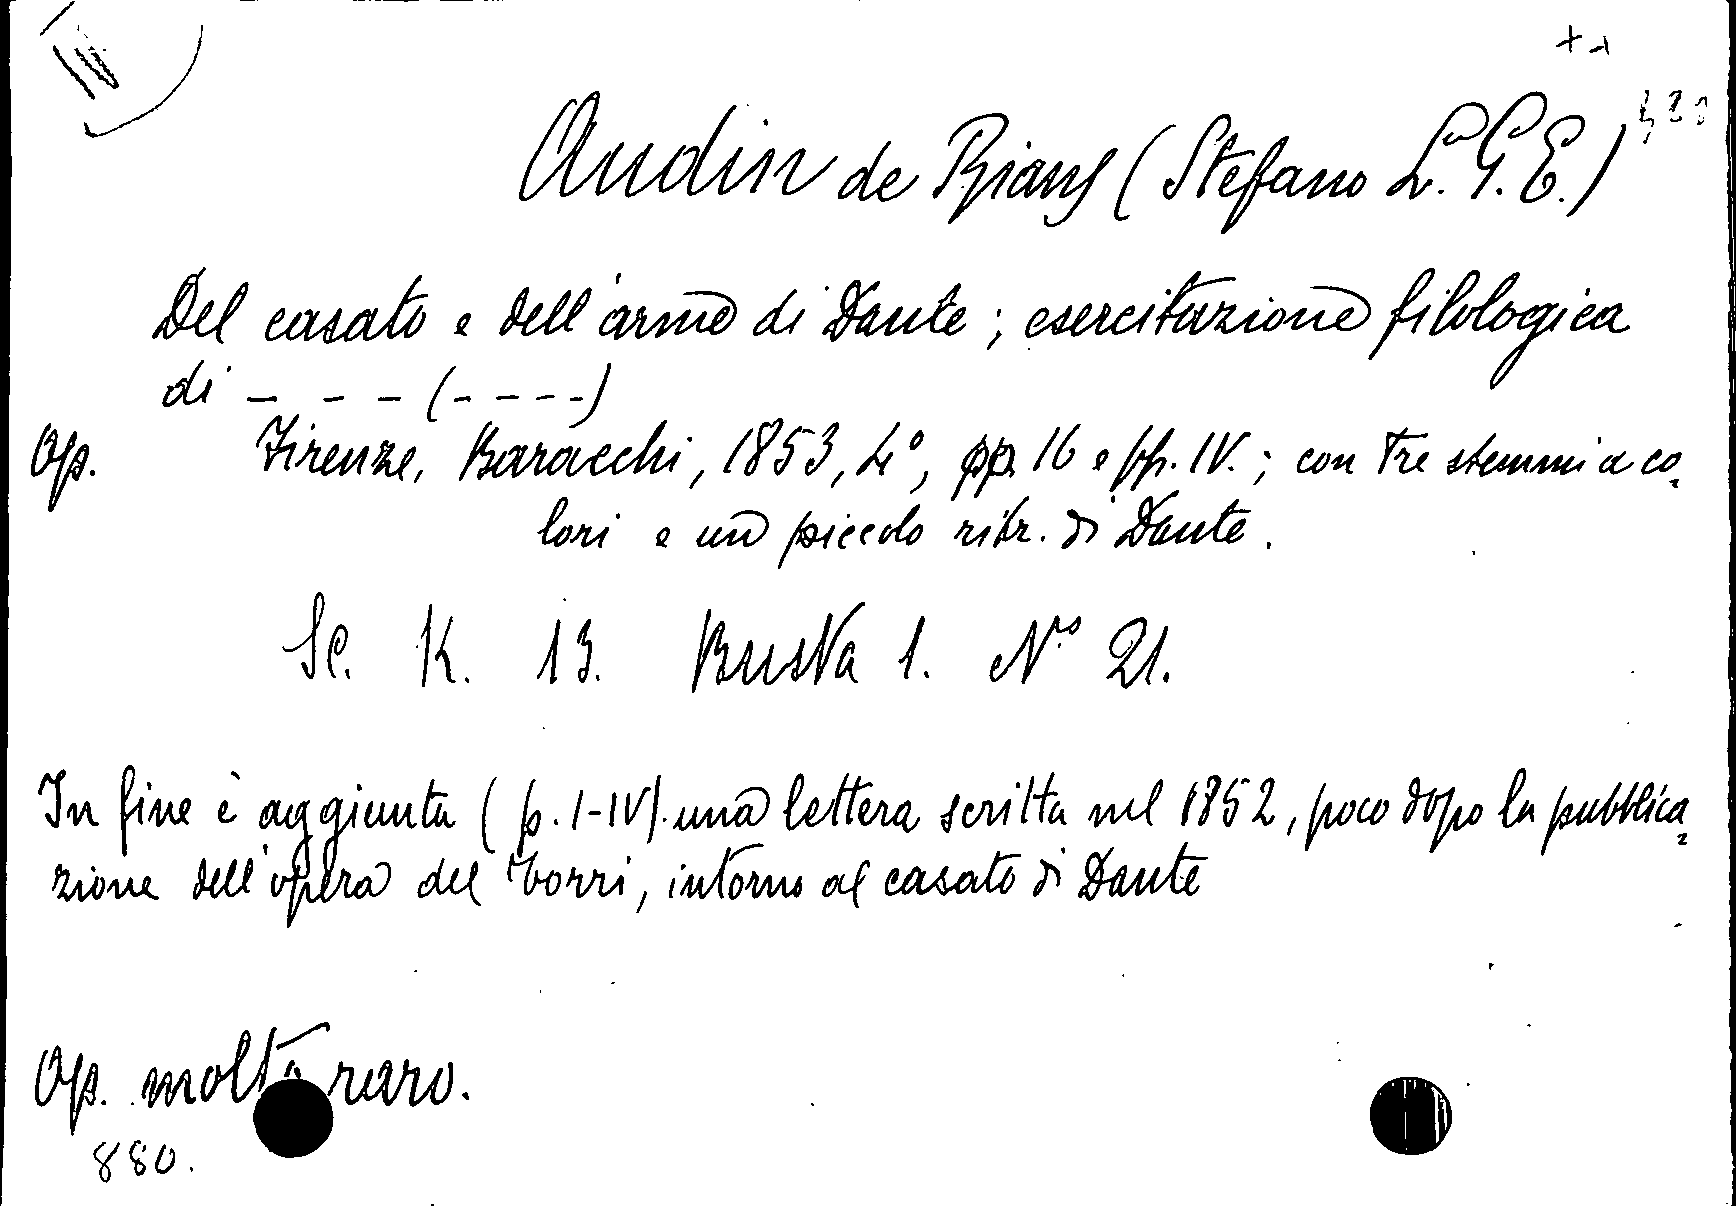 IV
Audin de Rians (Stefano L. G. E.)
Del casato e dell'arme di Dante; esercitazione filologica
di _ _ _ (_ _ _ _)
Op. Firenze, Baracchi, 1853, 4°, pp. 16 e pp. IV.; con tre stemmi a co-
lori e un piccolo ritr. di Dante.
Sc. K. 13. Busta 1. N.° 21.
In fine è aggiunta (p. I-IV). una lettera scritta nel 1852, poco dopo la pubblica-
zione dell'opera del Torri, intorno al casato di Dante
Op. molto raro.
880.